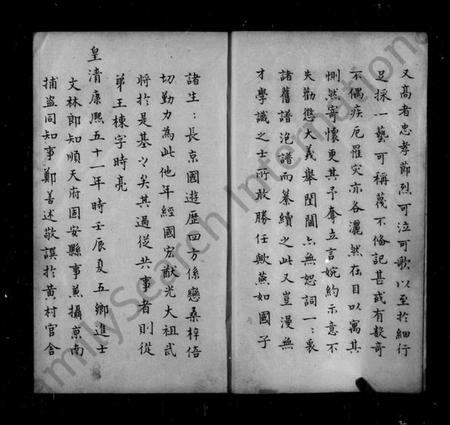 又高者忠孝節烈可泣可歌以至於細行
足採一藝可稱蔑不倫記甚或有數奇
不偶疾厄罹灾亦各灑然在目以寓其
惻然寄懷更其予奪立言婉約示意不
失勸懲大義舉閭閻六無恕詞一:衷
諸舊譜洵譜而纂續之此又豈漫無
才學識之士所敢勝任歟燕如國子
諸生:長京國遊歷四方係戀桑梓倍
切勤力為此他年經國宏猷光大祖武
將於是基之矣其過從共事者則從
弟王棟字時亮
皇清康熙五十一年時壬辰夏五鄉進士
文林郎知順天府固安縣事兼攝京南
捕盜同知事鄭善述敬譔於黄村官舍
FamilySearch International
FamilySearch International